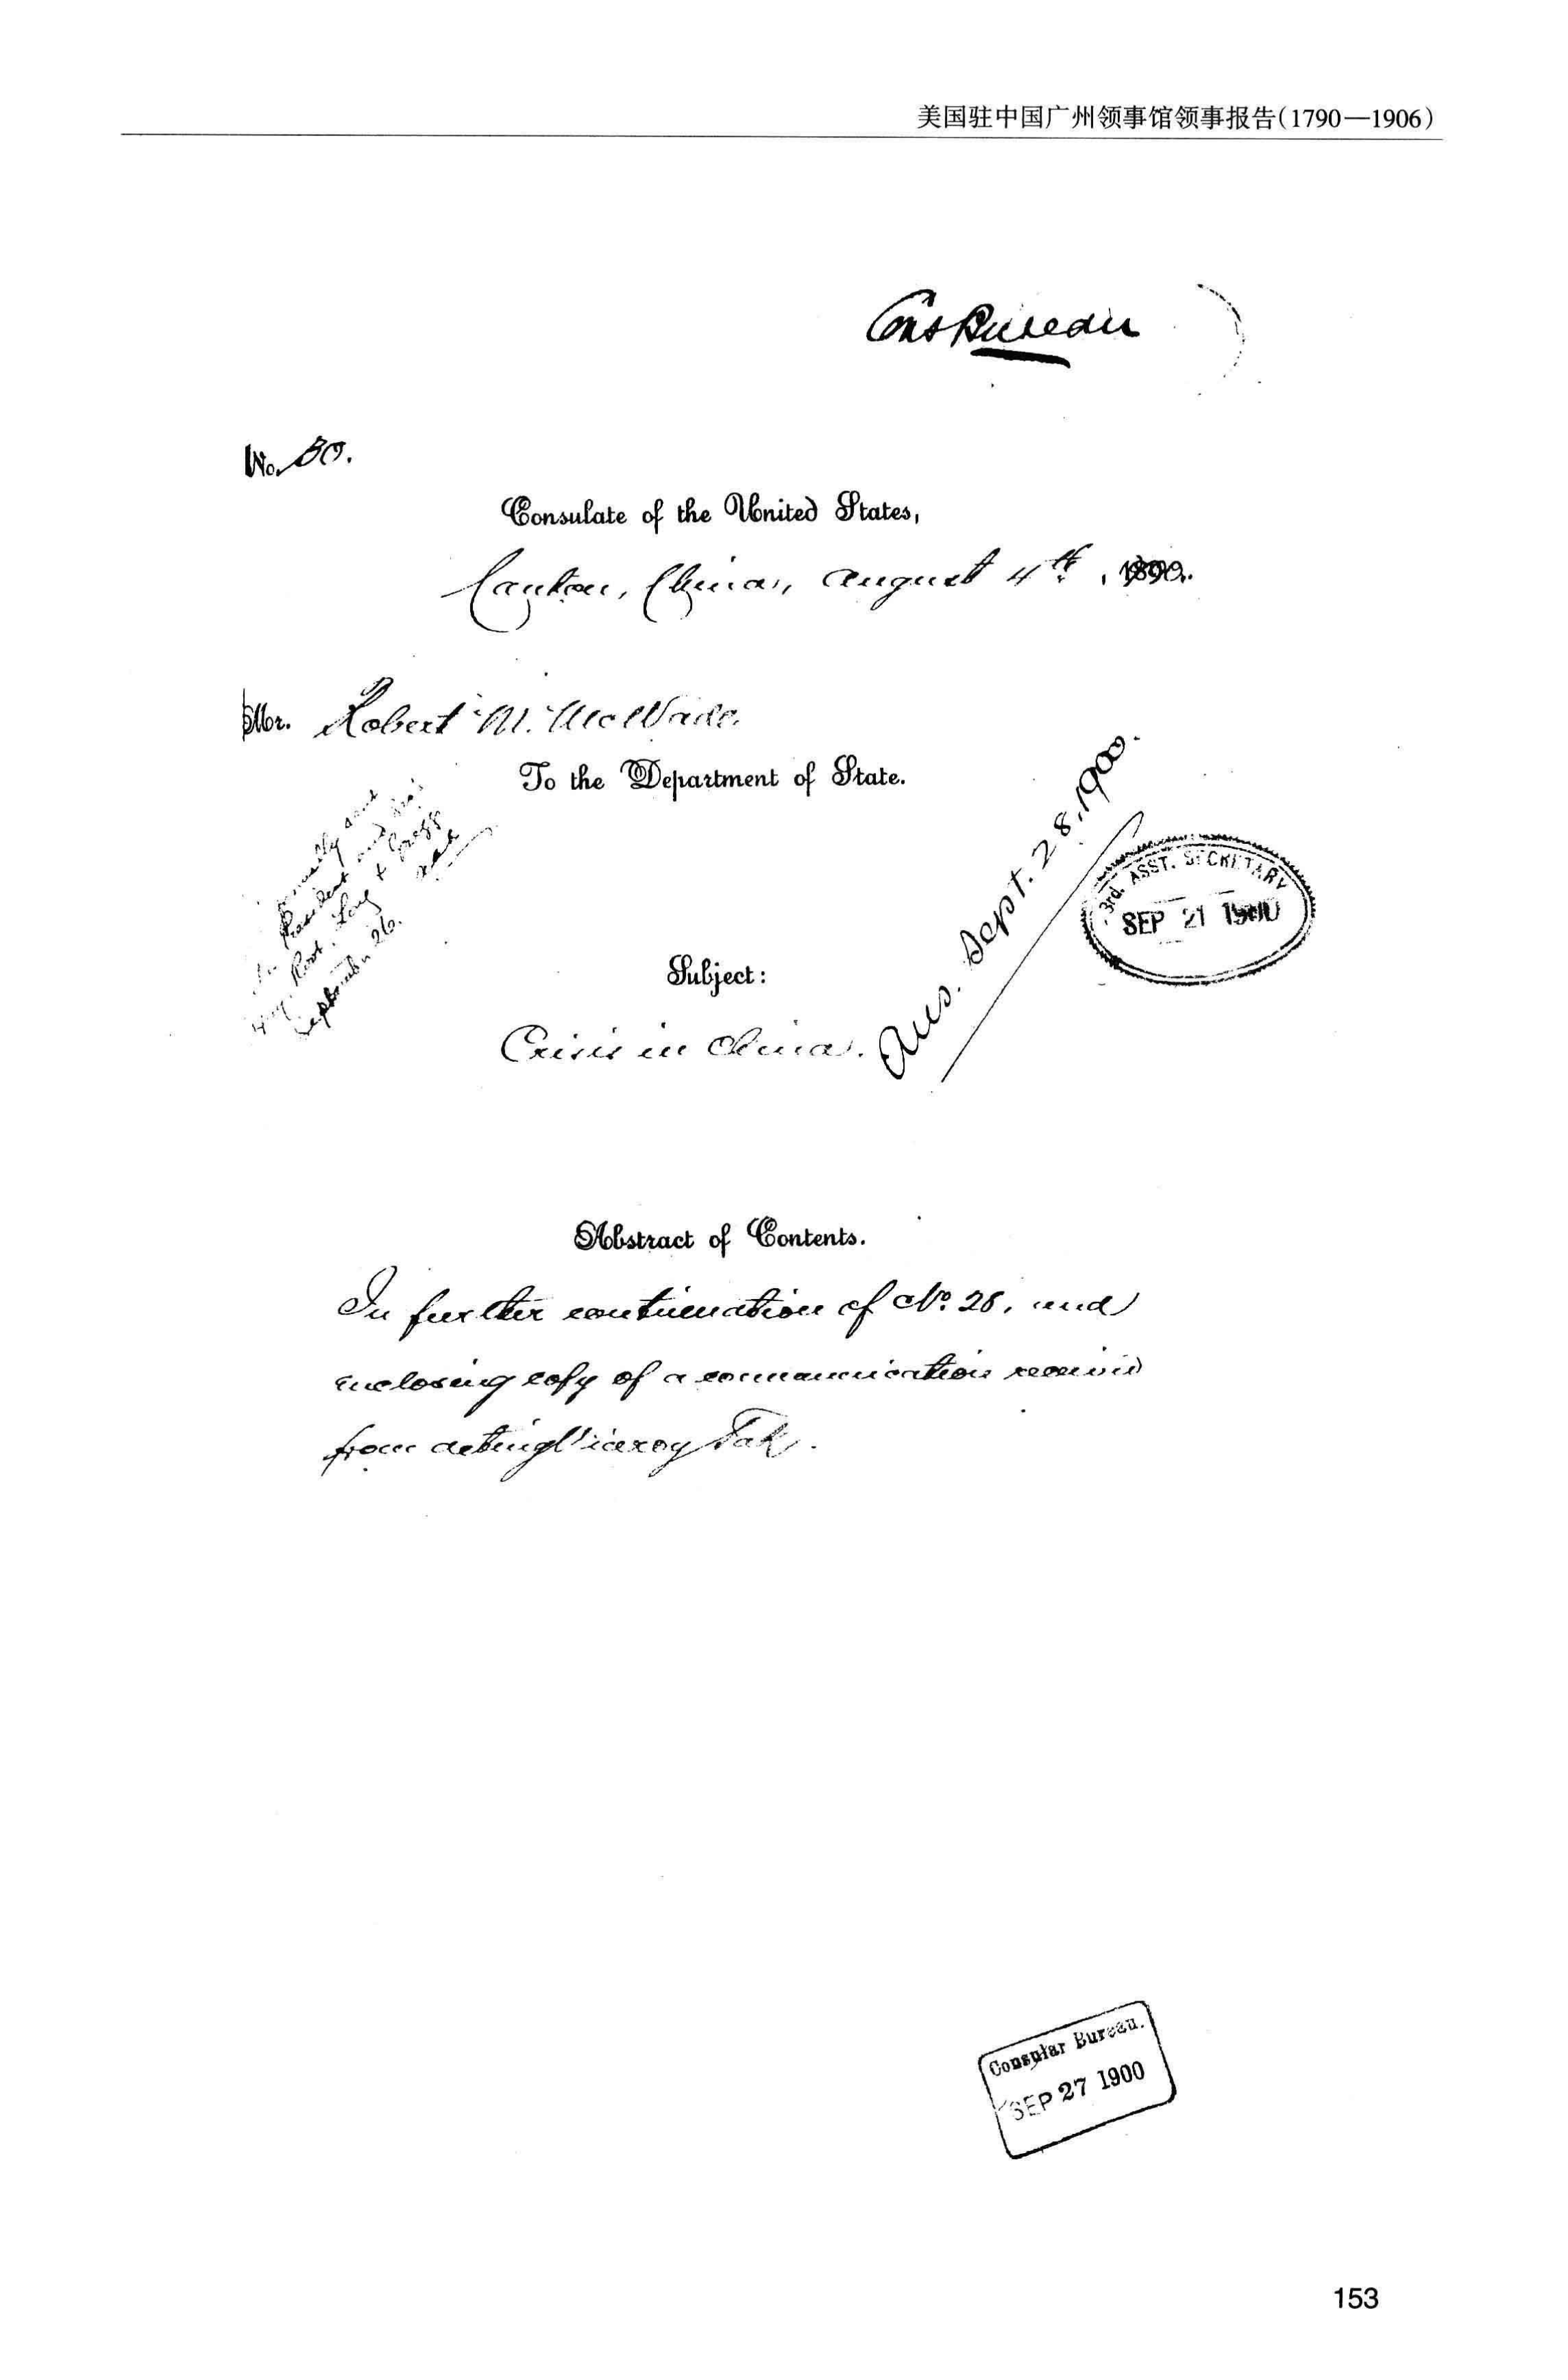 美国驻中国广州领事馆领事报告(1790—1906)
Cons Bureau
No. 30.
Consulate of the United States,
Canton, China, August 4th, 1899.
Mr. Robert M. McWade.
To the Department of State.
President and
Root, Long & Griggs
September 26.
Ans. Sept. 28, 1900.
3rd. ASST. SECRETARY
SEP 21 1900
Subject:
Crisis in China.
Abstract of Contents.
In further continuation of No. 28, and
enclosing copy of a communication received
from acting Viceroy Tak.
Consular Bureau.
SEP 27 1900
153